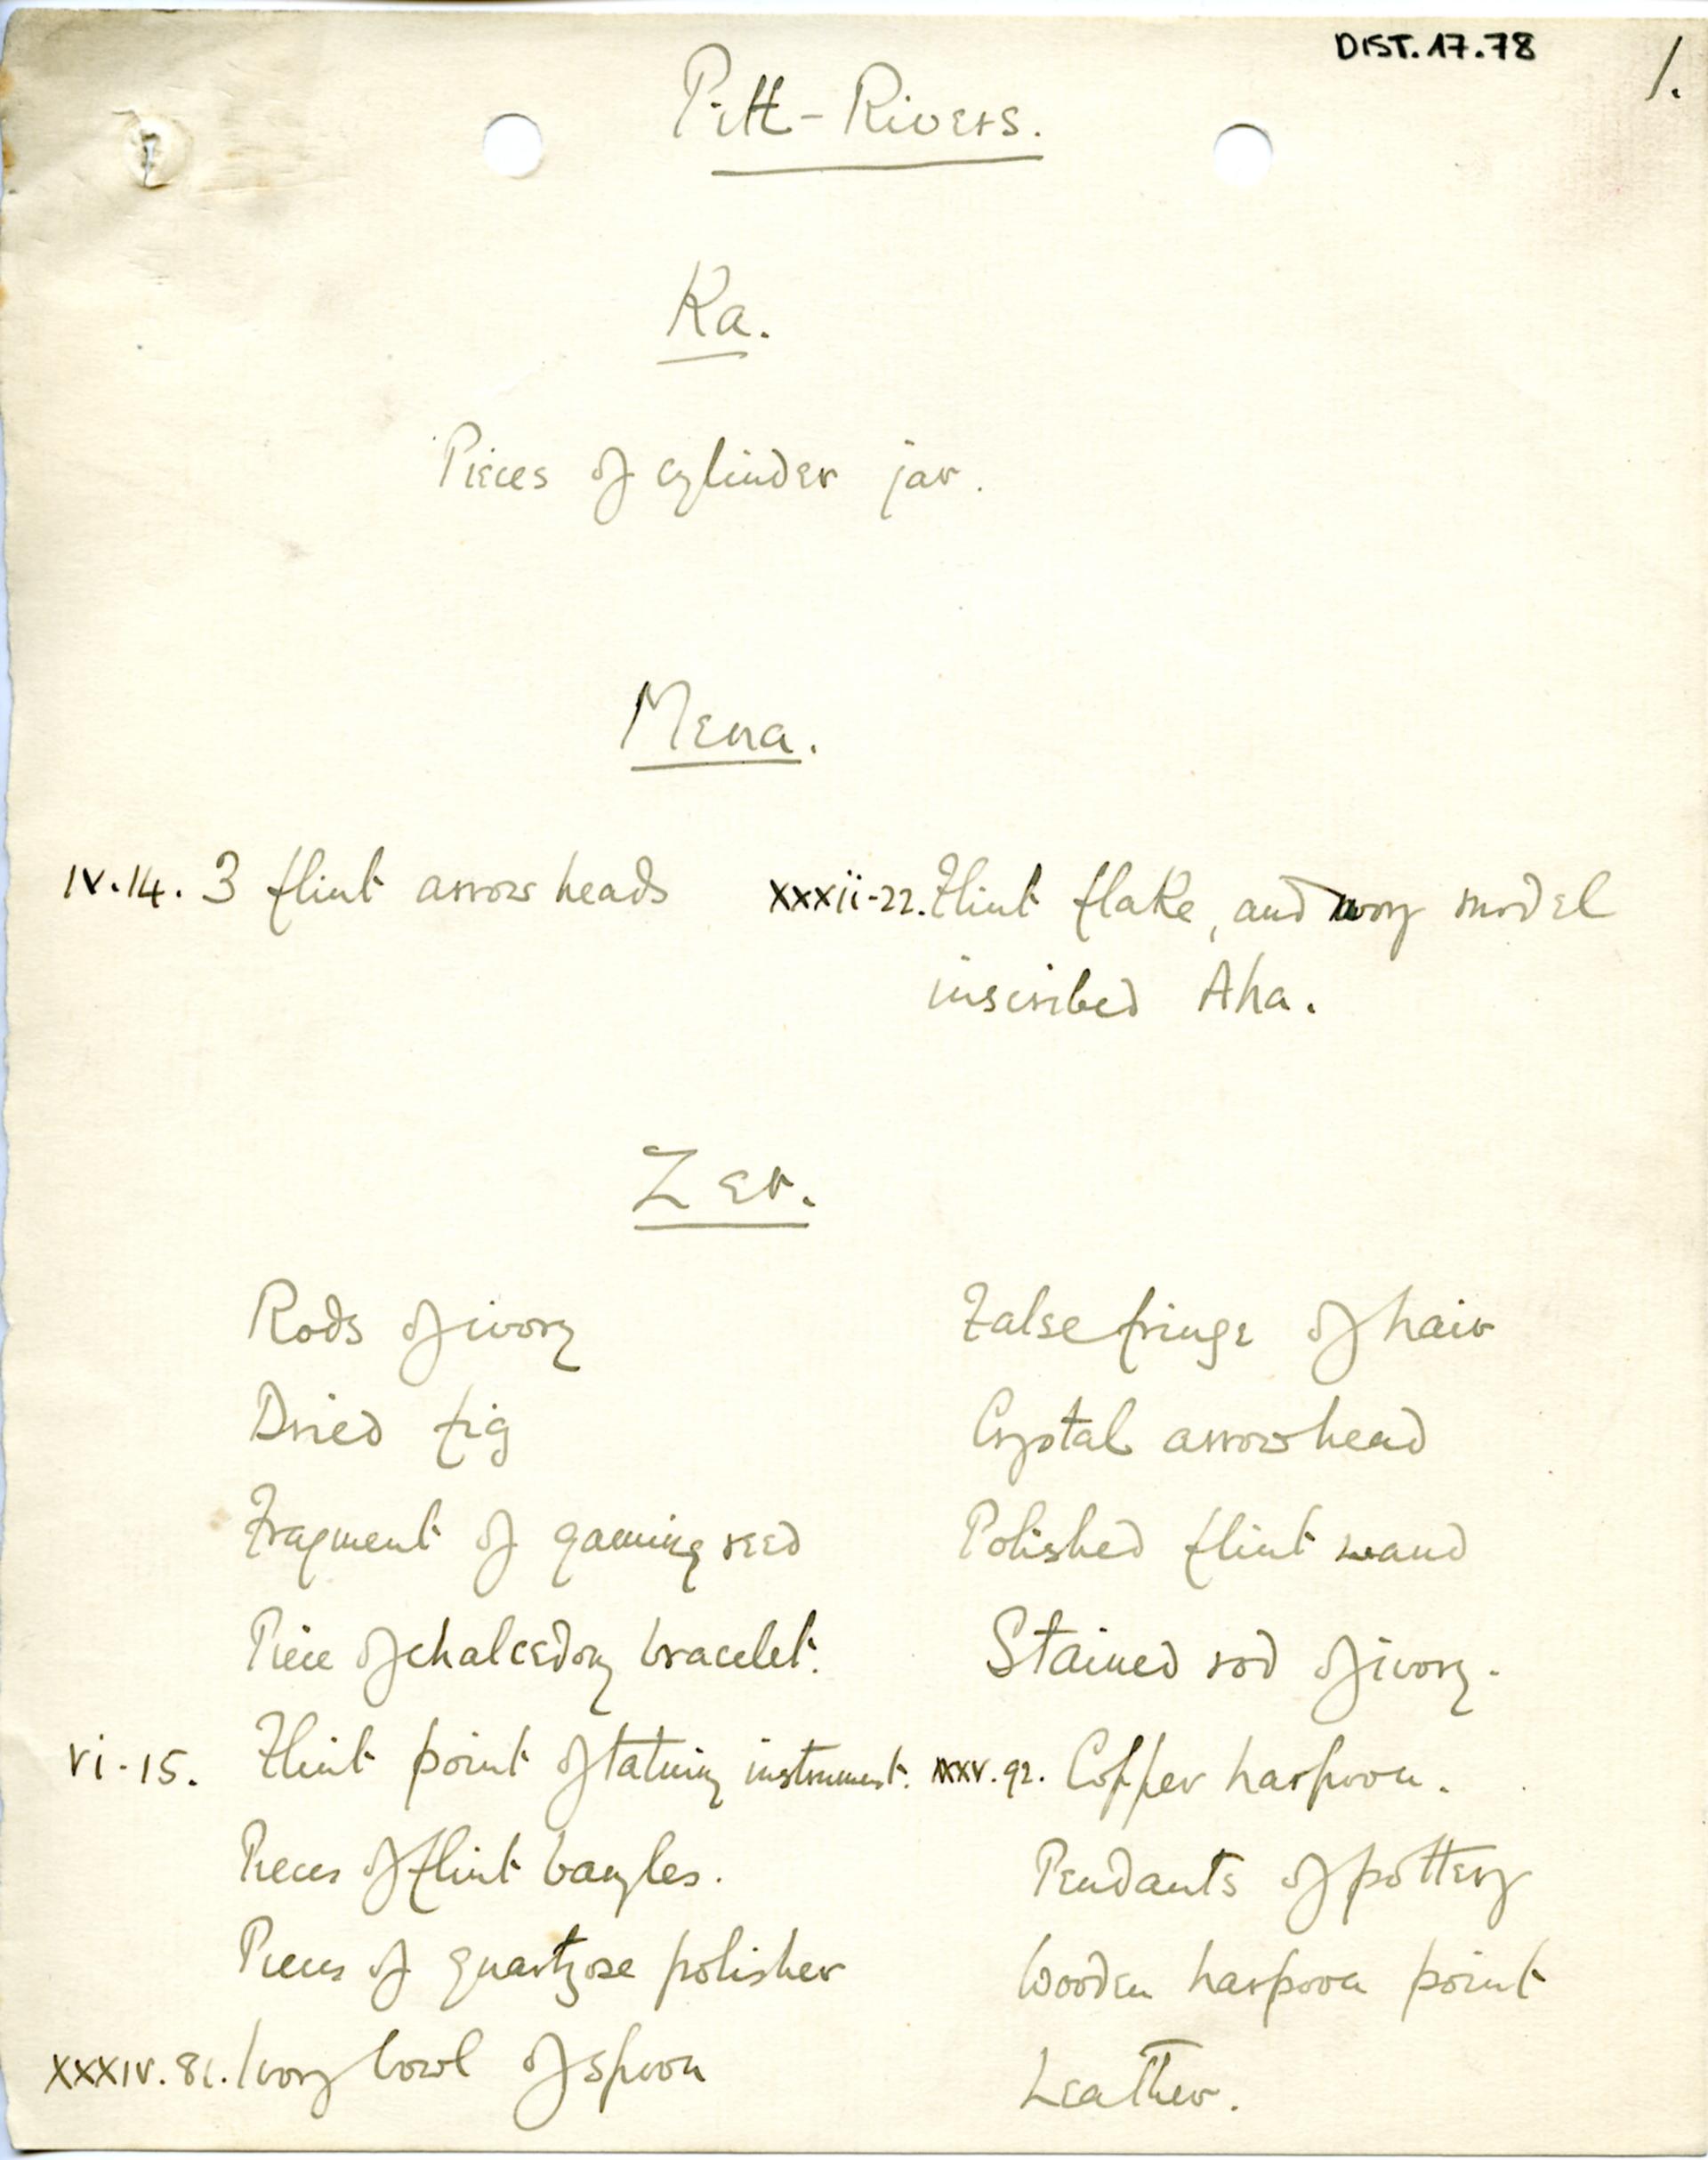 DIST. 17.78
1.
Pitt-Rivers.
Ka.
Pieces of cylinder jar.
Mena.
IV.14. 3 flint arrow heads
xxxii-22. Flint flake, and ivory model
inscribed Aha.
Zer.
Rods of ivory
Dried fig
Fragment of gaming reed
Piece of chalcedony bracelet.
vi-15. Flint point of tatuing instrument.
Pieces of flint bangles.
Pieces of quartzose polisher
XXXIV. 81. Ivory bowl of spoon
False fringe of hair
Crystal arrowhead
Polished flint wand
Stained rod of ivory.
xxxv.92. Copper harpoon.
Pendants of pottery
Wooden harpoon point
Leather.